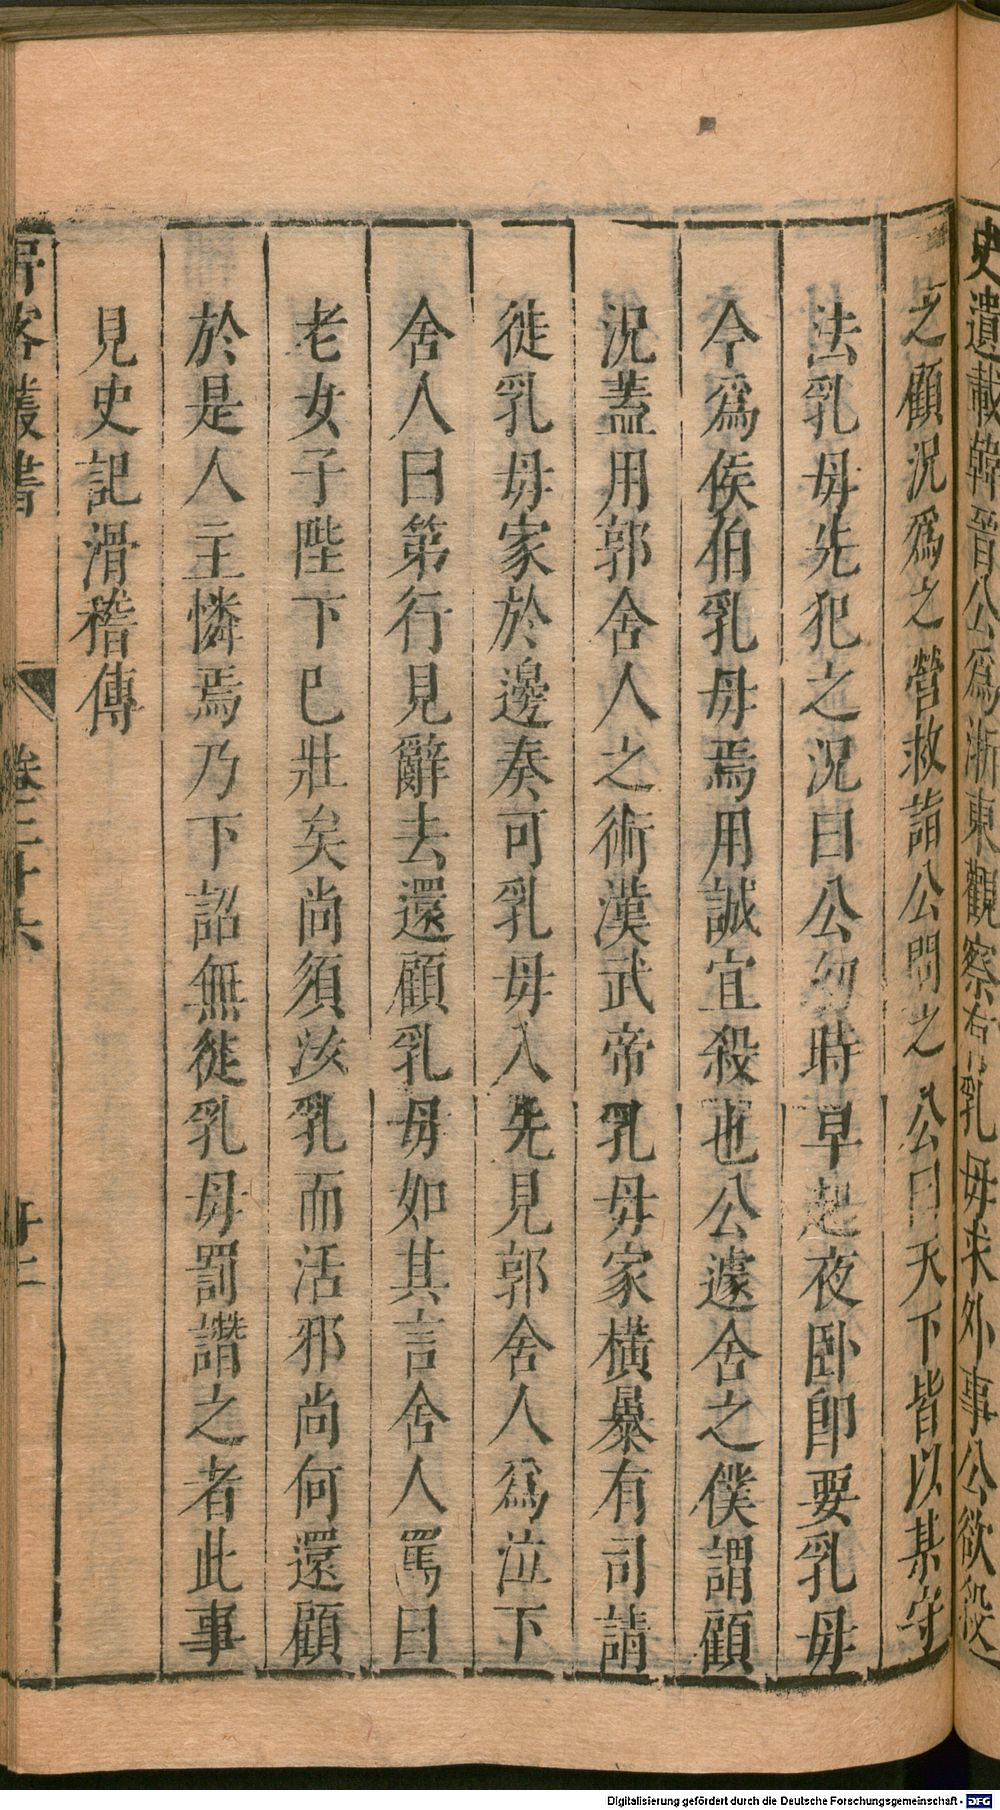 史遺載韓晉公為浙東觀察有乳母求外事公欲殺
之顧況爲之營救詣公問之公曰天下皆以某守
法乳母先犯之況曰公幼時早起夜卧即要乳母
今爲侯伯乳母焉用誠宜殺也公遽舍之僕謂顧
況蓋用郭舍人之術漢武帝乳母家橫暴有司請
徙乳母家於邊奏可乳母入先見郭舍人爲泣下
舍人曰第行見辭去還顧乳母如其言舍人罵曰
老女子陛下已壯矣尚須汝乳而活邪尚何還顧
於是人主憐焉乃下詔無徙乳母罰譖之者此事
見史記滑稽傳
客叢書 卷二十六
Digitalisierung gefördert durch die Deutsche Forschungsgemeinschaft - DFG